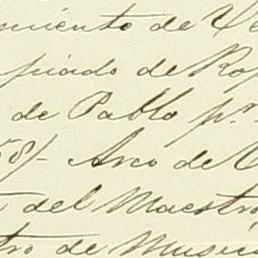 miento de Ve
piado de Rop
de Pablo pr.
58/- Arco de C
del Maestro
tro de Music